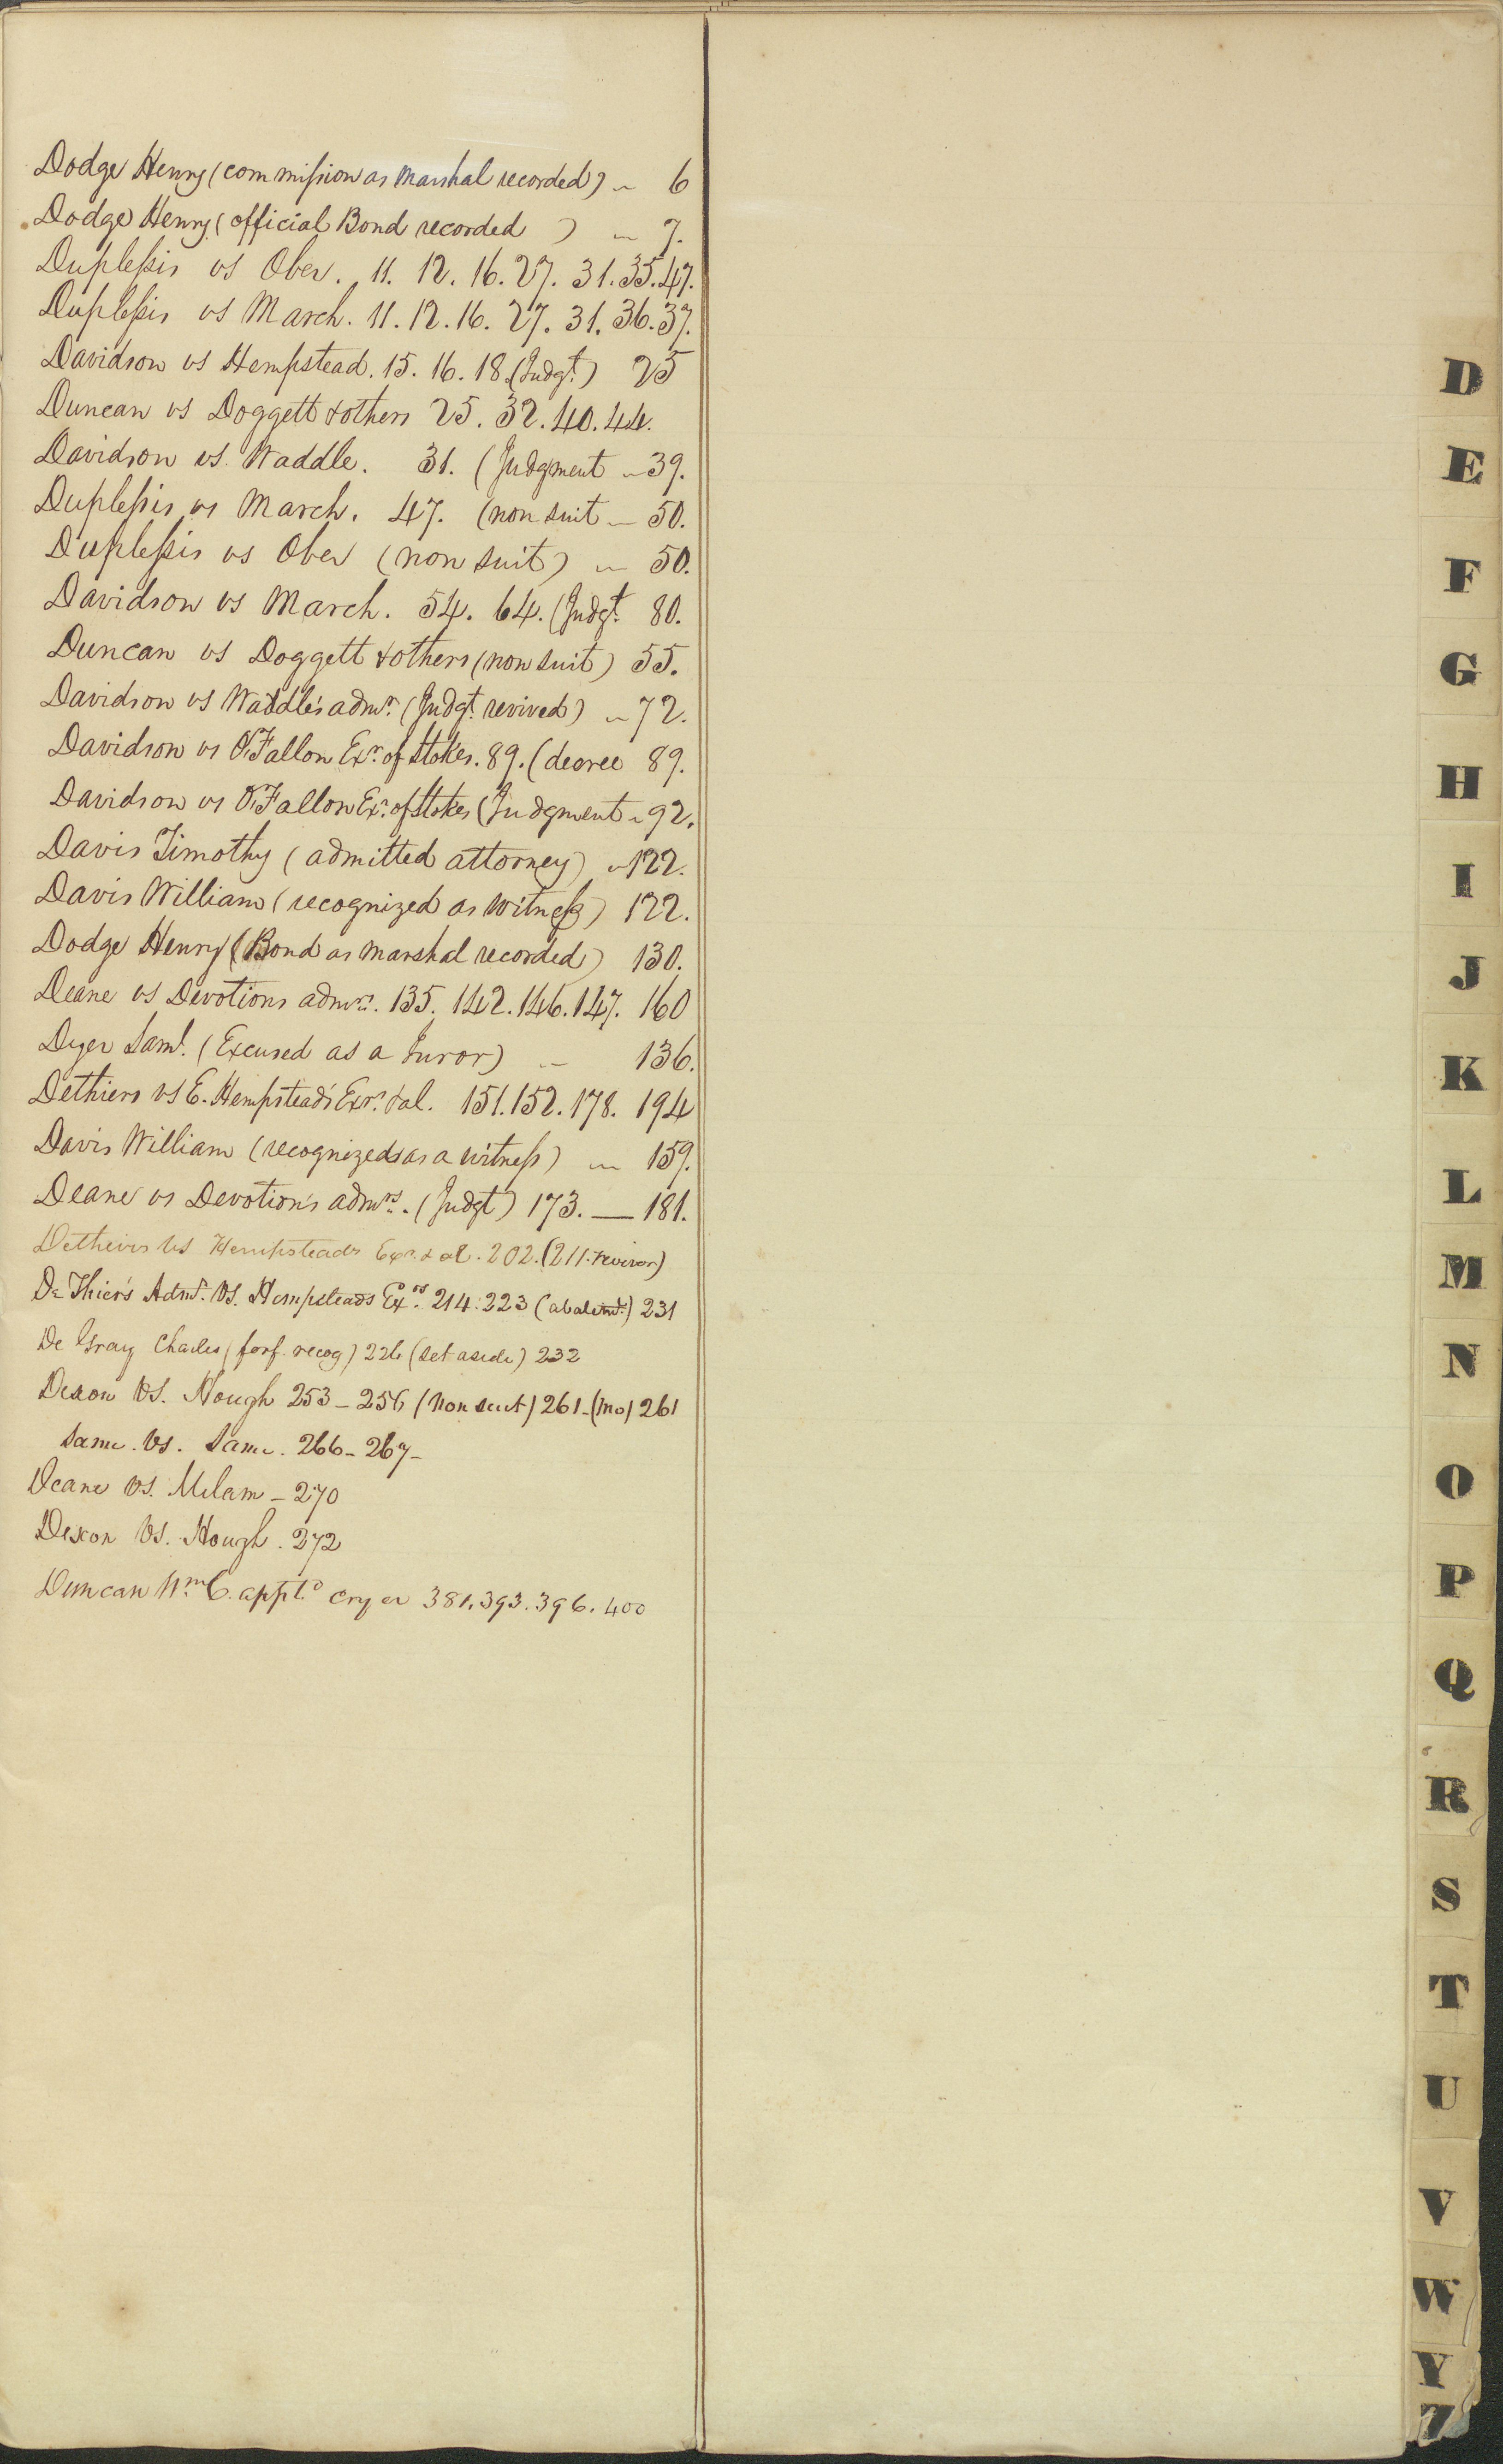 Dodge Henry (commission as Marshal recorded) 6
Dodge Henry (official Bond recorded ) 7.
Duplessis vs Ober. 11. 12. 16. 27. 31. 35. 47.
Duplessis vs March. 11. 12. 16. 27. 31. 36. 37.
Davidson vs Hempstead. 15. 16. 18. (Judgt.) 25
Duncan vs Doggett & others 25. 32. 40. 44.
Davidson vs. Waddle. 31. (Judgment 39.
Duplessis vs March. 47. (non suit — 50.
Duplessis vs Ober (non suit) 50.
Davidson vs March. 54. 64. (Judgt. 80.
Duncan vs Doggett & others (non suit) 55.
Davidson vs Waddle's admr. (Judgt. revived) 72.
Davidson vs O'Fallon Exr. of Stokes. 89. (decree 89.
Davidson vs O'Fallon Exr. of Stokes (Judgment 92.
Davis Timothy (admitted attorney) 122.
Davis William (recognized as witness) 122.
Dodge Henry (Bond as Marshal recorded) 130.
Deane vs Devotions admrs. 135. 142. 146. 147. 160
Dyer Saml. (Excused as a Juror) — 136.
Dethiers vs E. Hempstead's Exr. & al. 151. 152. 178. 194
Davis William (recognized as a witness) 159.
Deane vs Devotion's admrs. (Judgt) 173. — 181.
Dethiers vs Hempsteads Exr. & al. 202. (211. revivor)
De Thier's Admr. vs. Hempsteads Exrs. 214. 223 (abatemt.) 231
De Gray Charles (forf. recog) 226 (set aside) 232
Dixon vs. Hough 253 – 256 (non suit) 261 – (mo) 261
Same. vs. Same. 266 – 267 –
Deane vs. Milam – 270
Dixon vs. Hough. 272
Duncan Wm. C. apptd. cryer 381. 393. 396. 400
D
E
F
G
H
I
J
K
L
M
N
O
P
Q
R
S
T
U
V
W
Y
Z